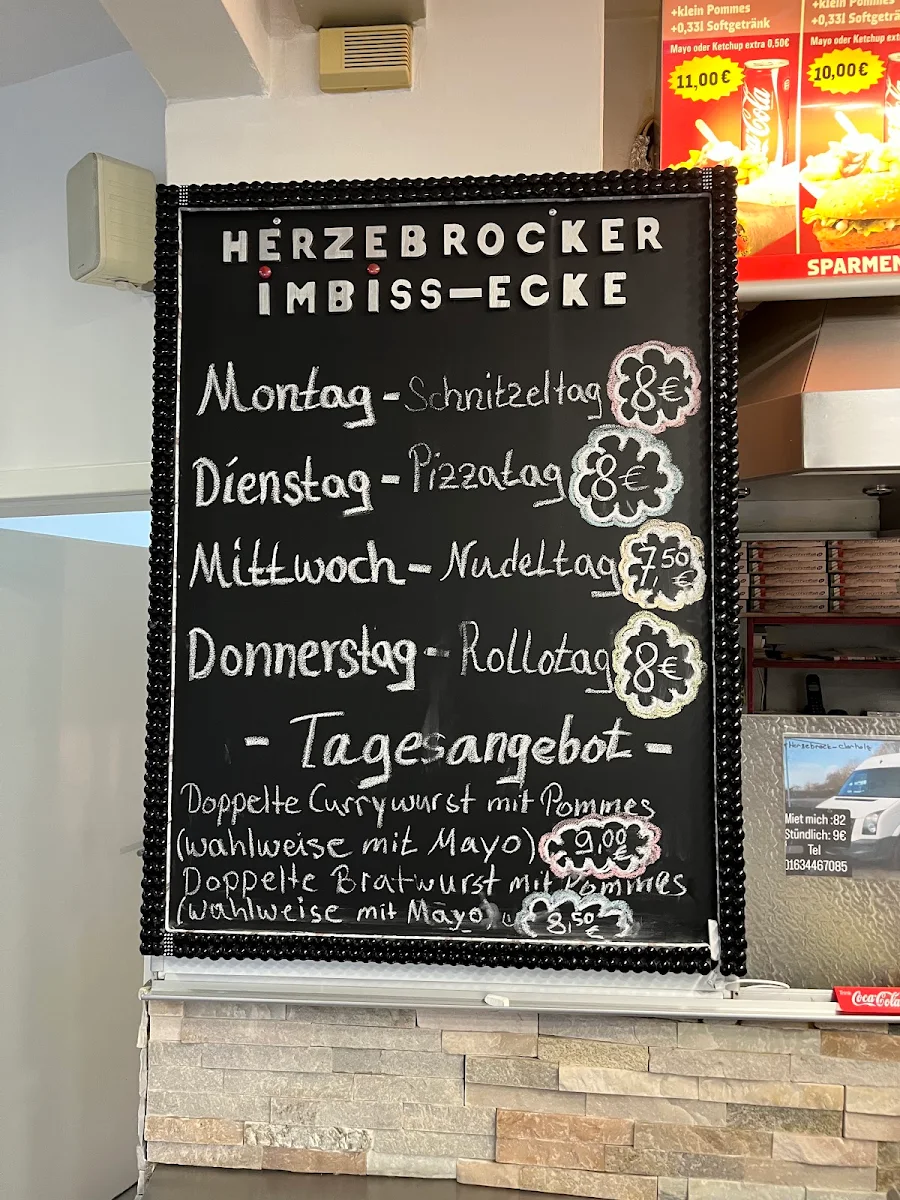 +klein Pommes
+0,33l Softgetränk
Mayo oder Ketchup extra 0,50€
11,00€
+klein Pommes
+0,33l Softgeträ
Mayo oder Ketchup ext
10,00€
SPARMEN
HERZEBROCKER
iMBiSS-ECKE
Montag - Schnitzeltag 8€
Dienstag - Pizzatag 8€
Mittwoch - Nudeltag 7,50 €
Donnerstag - Rollotag 8€
- Tagesangebot -
Doppelte Currywurst mit Pommes
(wahlweise mit Mayo) 9,00 €
Doppelte Bratwurst mit Pommes
(wahlweise mit Mayo) 8,50 €
Herzebrock-Clarholz
Miet mich :82
Stündlich: 9€
Tel
01634467085
Coca-Cola